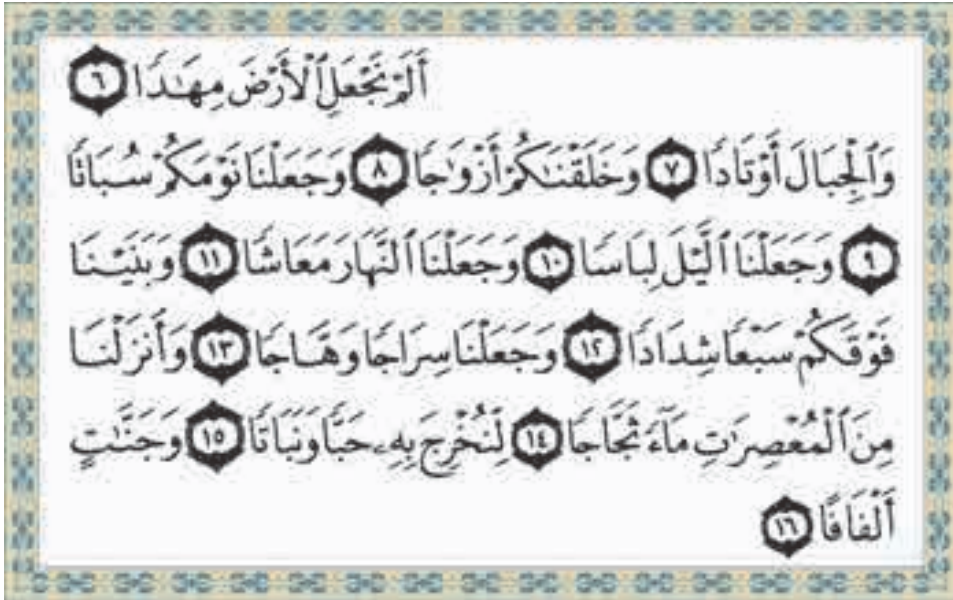 أَلَمْ نَجْعَلِ ٱلْأَرْضَ مِهَٰدًا ٦
وَٱلْجِبَالَ أَوْتَادًا ٧ وَخَلَقْنَٰكُمْ أَزْوَٰجًا ٨ وَجَعَلْنَا نَوْمَكُمْ سُبَاتًا
٩ وَجَعَلْنَا ٱلَّيْلَ لِبَاسًا ١٠ وَجَعَلْنَا ٱلنَّهَارَ مَعَاشًا ١١ وَبَنَيْنَا
فَوْقَكُمْ سَبْعًا شِدَادًا ١٢ وَجَعَلْنَا سِرَاجًا وَهَّاجًا ١٣ وَأَنزَلْنَا
مِنَ ٱلْمُعْصِرَٰتِ مَآءً ثَجَّاجًا ١٤ لِّنُخْرِجَ بِهِۦ حَبًّا وَنَبَاتًا ١٥ وَجَنَّٰتٍ
أَلْفَافًا ١٦